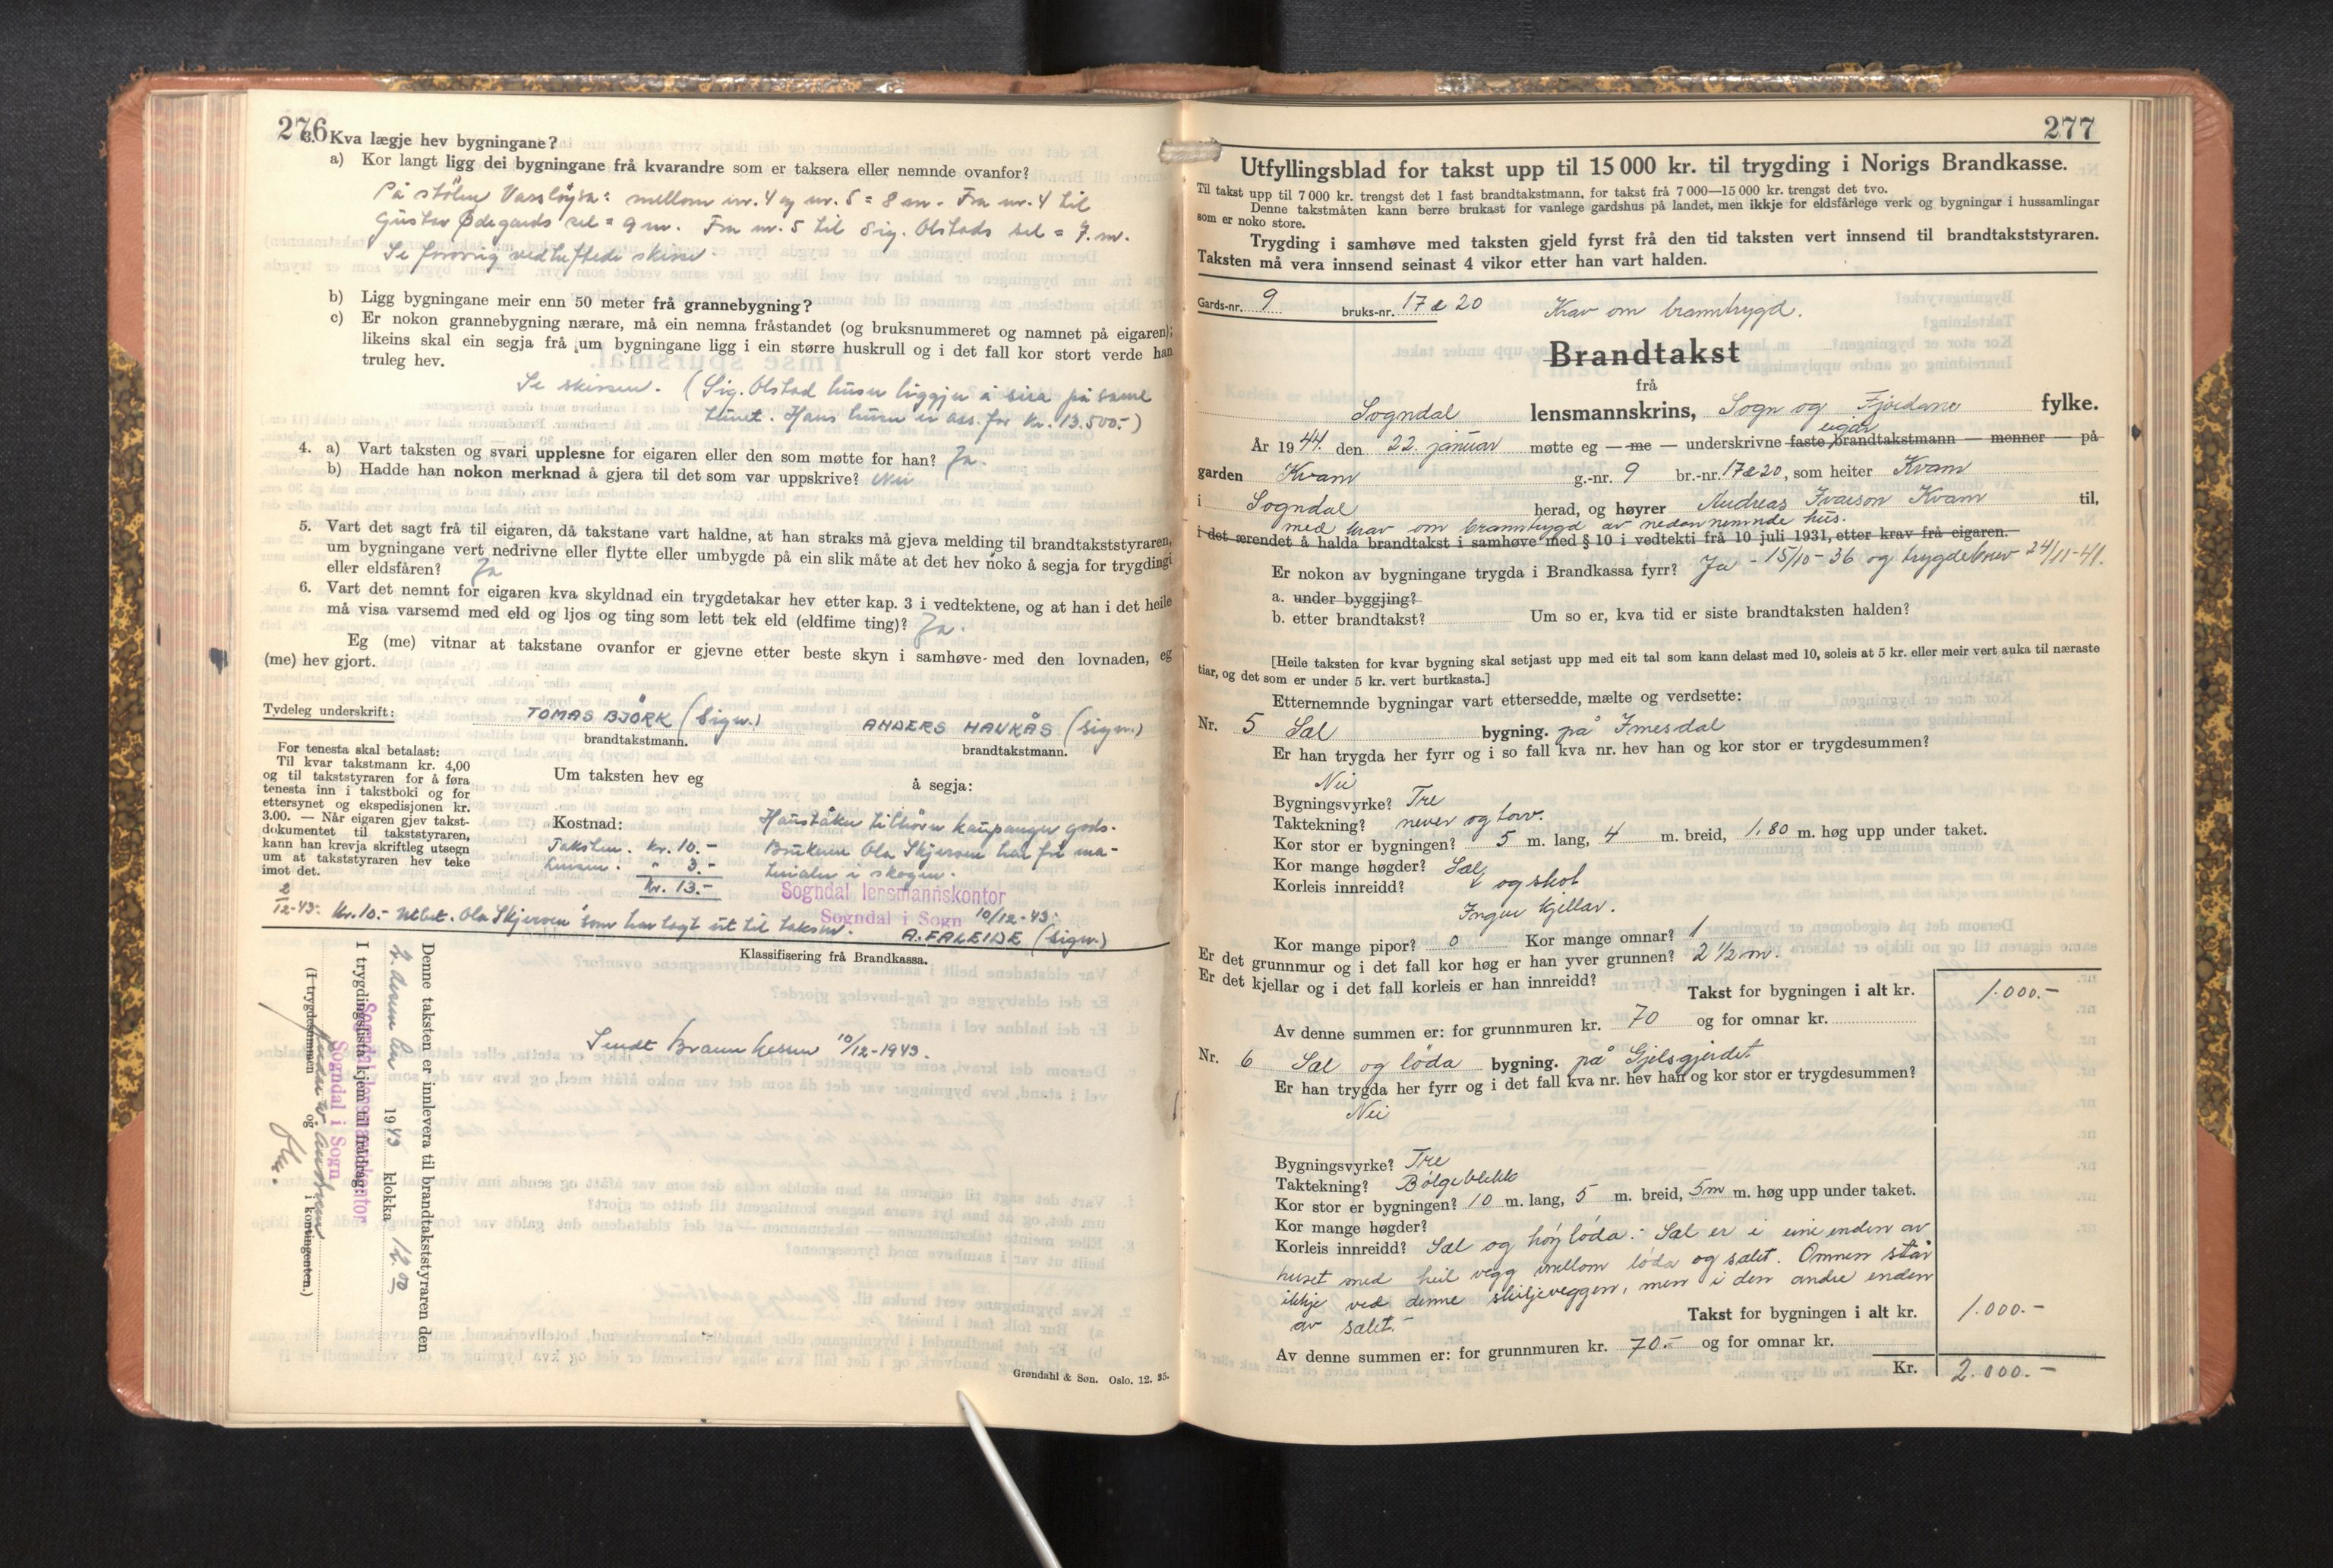 276
3. Kva lægje hev bygningane?
a) Kor langt ligg dei bygningane frå kvarandre som er taksera eller nemnde ovanfor?
På stölen Vassløysa: mellom nr. 4 og nr. 5 = 8 m. Fra nr. 4 til
Gustav Ødegards sel = 9 m. Fra nr. 5 til Sig. Olstads sel = 7. m.
Se forøvrig vedheftede skisse.
b) Ligg bygningane meir enn 50 meter frå grannebygning?
c) Er nokon grannebygning nærare, må ein nemna fråstandet (og bruksnummeret og namnet på eigaren);
likeins skal ein segja frå um bygningane ligg i ein større huskrull og i det fall kor stort verde han
truleg hev.
Se skissen. (Sig. Olstad husa liggju å sira på same
tunet. Hans husa er ass. for kr. 13.500.-)
4. a) Vart taksten og svari upplesne for eigaren eller den som møtte for han? Ja.
b) Hadde han nokon merknad å gjera til det som var uppskrive? Nei
5. Vart det sagt frå til eigaren, då takstane vart haldne, at han straks må gjeva melding til brandtakststyraren,
um bygningane vert nedrivne eller flytte eller umbygde på ein slik måte at det hev noko å segja for trygdingi
eller eldsfåren? Ja
6. Vart det nemnt for eigaren kva skyldnad ein trygdetakar hev etter kap. 3 i vedtektene, og at han i det heile
må visa varsemd med eld og ljos og ting som lett tek eld (eldfime ting)? Ja.
Eg (me) vitnar at takstane ovanfor er gjevne etter beste skyn i samhøve med den lovnaden, eg
(me) hev gjort.
Tydeleg underskrift: TOMAS BJÖRK (sign.) ANDERS HAUKÅS (sign.)
brandtakstmann. brandtakstmann.
For tenesta skal betalast:
Til kvar takstmann kr. 4,00
og til takststyraren for å føra
tenesta inn i takstboki og for
ettersynet og ekspedisjonen kr.
3.00. — Når eigaren gjev takst-
dokumentet til takststyraren,
kann han krevja skriftleg utsegn
um at takststyraren hev teke
imot det.
Um taksten hev eg å segja:
Kostnad:
Taksten. kr. 10.-
" 3.-
kr. 13.-
Haustaken tilhörer kaupanger gods.
Brukaren Ola Skjersen har fri ma-
terialer i skogen.
Sogndal lensmannskontor
Sogndal i Sogn 10/12-43.
2/12-43. Kr. 10.- utbet. Ola Skjersen som har lagt ut til taksm.
A. FALEIDE (sign.)
Klassifisering frå Brandkassa.
Sendt Brannkassen 10/12-1943.
Denne taksten er innlevera til brandtakststyraren den
2. desember 1943 klokka 12.00
I trygdingslista kjem til frådrag:
Sogndal lensmannskontor
Sogndal i Sogn
(I trygdesummen og i kontingenten.)
Grøndahl & Søn. Oslo. 12. 35.
277
Utfyllingsblad for takst upp til 15 000 kr. til trygding i Norigs Brandkasse.
Til takst upp til 7 000 kr. trengst det 1 fast brandtakstmann, for takst frå 7 000—15 000 kr. trengst det två.
Denne takstmåten kann berre brukast for vanlege gardshus på landet, men ikkje for eldsfårlege verk og bygningar i hussamlingar
som er noko store.
Trygding i samhøve med taksten gjeld fyrst frå den tid taksten vert innsend til brandtakststyraren.
Taksten må vera innsend seinast 4 vikor etter han vart halden.
Gards-nr. 9 bruks-nr. 17 & 20 Krav om branntrygd.
Brandtakst
frå
Sogndal lensmannskrins, Sogn og Fjordane fylke.
eigar
År 1944. den 22. januar møtte eg — me — underskrivne faste brandtakstmann — menner — på
garden Kvam g.-nr. 9 br.-nr. 17 & 20, som heiter Kvam
i Sogndal herad, og høyrer Andreas Ivarson Kvam til,
med krav om branntrygd av nedannemnde hus.
i det ærendet å halda brandtakst i samhøve med § 10 i vedtekti frå 10 juli 1931, etter krav frå eigaren.
Er nokon av bygningane trygda i Brandkassa fyrr? Ja - 15/10-36 og trygdebrev 24/11-41.
a. under byggjing?
b. etter brandtakst? Um so er, kva tid er siste brandtaksten halden?
[Heile taksten for kvar bygning skal setjast upp med eit tal som kann delast med 10, soleis at 5 kr. eller meir vert auka til næraste
tiar, og det som er under 5 kr. vert burtkasta.]
Etternemnde bygningar vart ettersedde, mælte og verdsette:
Nr. 5 Sæl bygning. på Imesdal
Er han trygda her fyrr og i so fall kva nr. hev han og kor stor er trygdesummen?
Nei
Bygningsvyrke? Tre
Taktekning? never og torv.
Kor stor er bygningen? 5 m. lang, 4 m. breid, 1,80 m. høg upp under taket.
Kor mange høgder? Sæl
Korleis innreidd? og skot
Ingen kjellar.
Kor mange pipor? 0 Kor mange omnar? 1
Er det grunnmur og i det fall kor høg er han yver grunnen? 2 ½ m.
Er det kjellar og i det fall korleis er han innreidd?
Takst for bygningen i alt kr. 1.000.-
Av denne summen er: for grunnmuren kr. 70 og for omnar kr.
Nr. 6 Sæl og löda bygning. på Gjelsgjerdet
Er han trygda her fyrr og i det fall kva nr. hev han og kor stor er trygdesummen?
Nei
Bygningsvyrke? Tre
Taktekning? Bölgeblikk
Kor stor er bygningen? 10 m. lang, 5 m. breid, 5m m. høg upp under taket.
Kor mange høgder?
Korleis innreidd? Sæl og höy löda. Sæl er i eine enden av
huset med heil vegg mellom löda og sælet. Omnen står
ikkje ved denne skiljeveggen, men i den andre enden
av sælet.-
Takst for bygningen i alt kr. 1.000.-
Av denne summen er: for grunnmuren kr. 70.- og for omnar kr.
Kr. 2.000.-